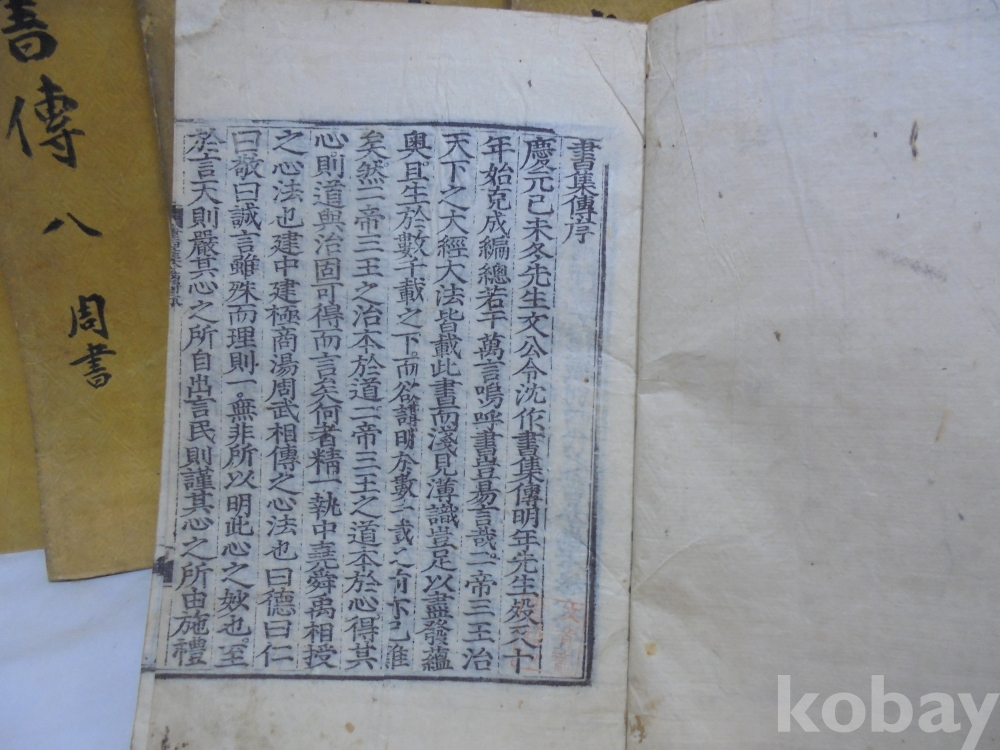 書集傳序
慶元己未冬先生文公令沈作書集傳明年先生歿又十
年始克成編總若干萬言嗚呼書豈易言哉二帝三王治
天下之大經大法皆載此書而淺見薄識豈足以盡發蘊
奧且生於數千載之下而欲講明於數
矣然二帝三王之治本於道二帝三王之道本於心得其
心則道與治固可得而言矣何者精一執中堯舜禹相授
之心法也建中建極商湯周武相傳之心法也曰德曰仁
曰敬曰誠言雖殊而理則一無非所以明此心之妙也至
於言天則嚴其心之所自出言民則謹其心之所由施禮
書傳 八
周書
kobay